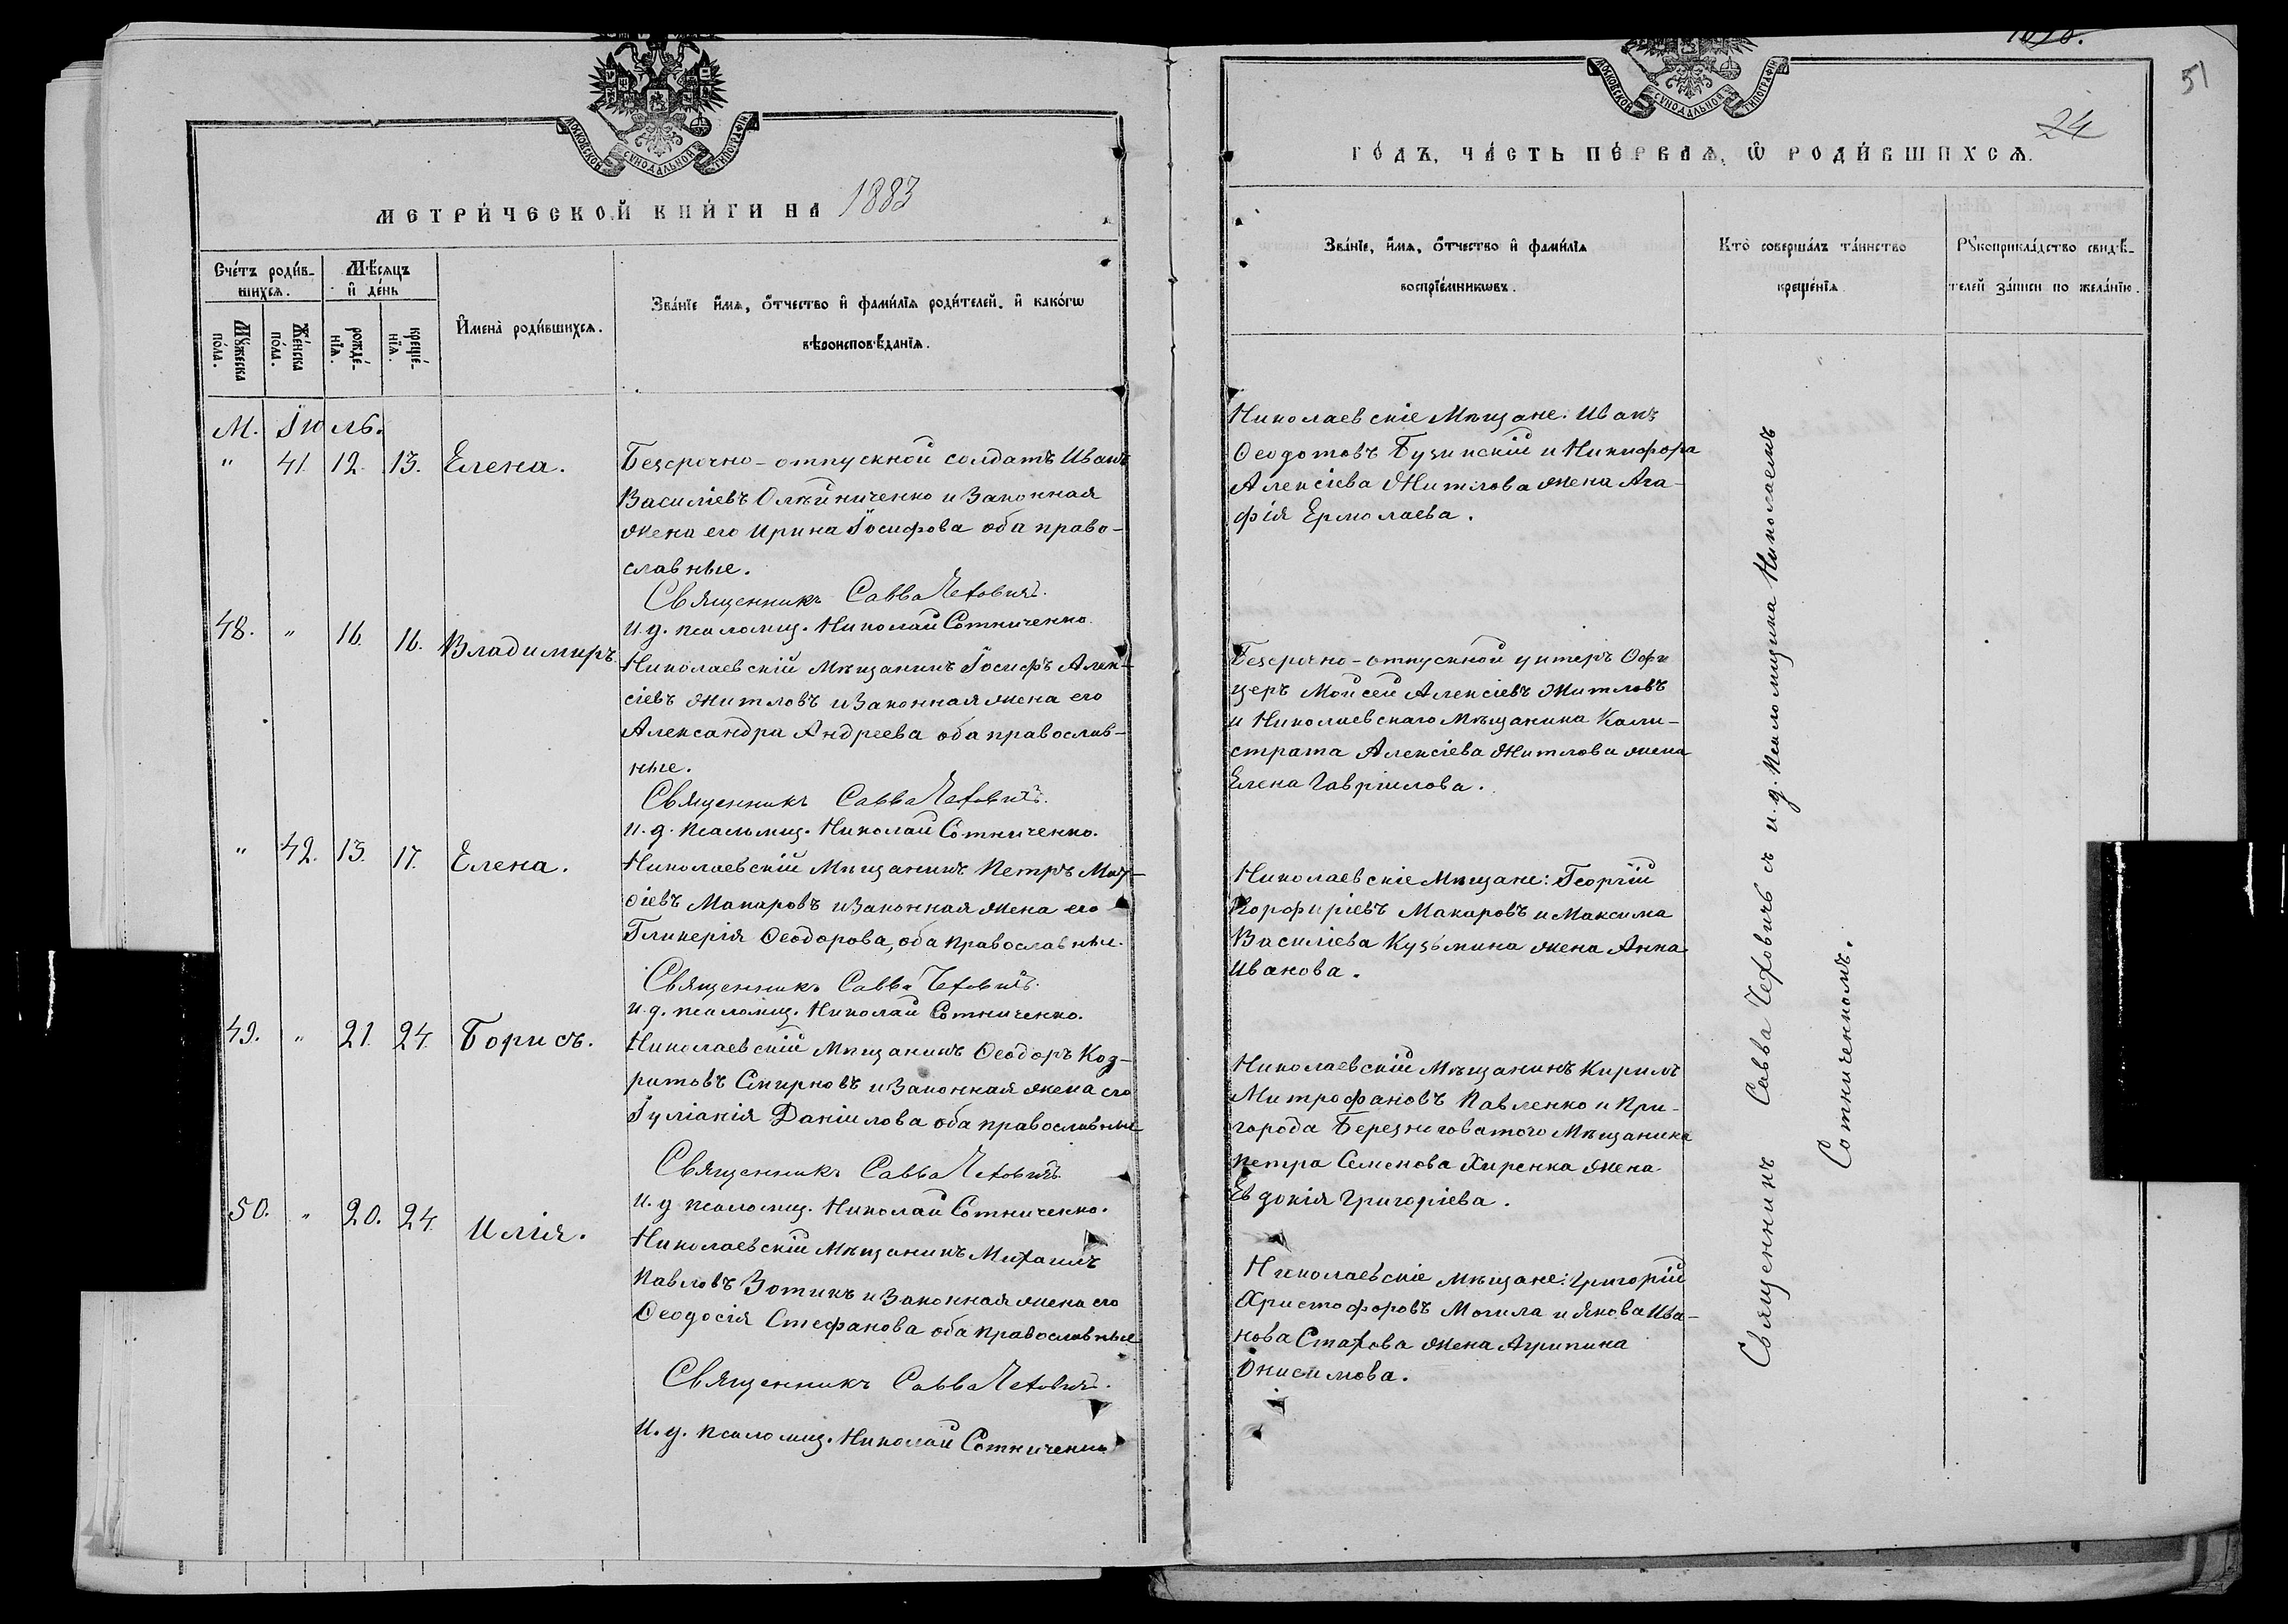 МОСКОВСКОЙ СѴНОДАЛЬНОЙ ТИПОГРАФІИ
МЕТРИ́ЧЕСКОЙ КНИ́ГИ НА 1883
Сче́тъ роди́в-
шихся.
Мѣ́сяцъ
и҆ де́нь
Мꙋ́жеска
по́ла.
Же́нска
по́ла.
рожде́-
нїя.
креще́-
нїя.
И҆мена̀ роди́вшихся.
Зва́нїе и҆́мя, ѻ҆́тчество и҆ фами́лїя роди́телей, и҆ како́гѡ
вѣроисповѣ́данїя.
М. Іюль.
" 41. 12. 13. Елена.
Безсрочно-отпускной солдатъ Иванъ
Василіевъ Олѣйниченко и законная
жена его Ирина Іосифова оба право-
славные.
Священникъ Савва Чеховичъ.
И. д. псаломщ. Николай Сотниченко.
48. " 16. 16. Владимиръ.
Николаевскій Мѣщанинъ Іосифъ Алек-
сіевъ Житловъ и законная жена его
Александра Андреева оба православ-
ные.
Священникъ Савва Чеховичъ.
И. д. псальмщ. Николай Сотниченко.
" 42. 13. 17. Елена.
Николаевскій Мѣщанинъ Петръ
Макаровъ и законная жена его
Гликерія Ѳеодорова, оба православные.
Священникъ Савва Чеховичъ.
И. д. псаломщ. Николай Сотниченко.
49. " 21. 24. Борисъ.
Николаевскій Мѣщанинъ Ѳеодоръ Код-
ратовъ Смирновъ и законная жена его
Іуліанія Даніилова оба православные
Священникъ Савва Чеховичъ.
И. д. псаломщ. Николай Сотниченко.
50. " 20. 24. Илія.
Николаевскій Мѣщанинъ Михаилъ
Павловъ Зотикъ и законная жена его
Ѳеодосія Стефанова оба православные
Священникъ Савва Чеховичъ.
И. д. псаломщ. Николай Сотниченко
51
24
МОСКОВСКОЙ СѴНОДАЛЬНОЙ ТИПОГРАФІИ
ГО́ДЪ, ЧА́СТЬ ПЕ́РВАЯ, Ѡ҆ РОДИ́ВШИХСЯ.
Зва́нїе, и҆́мя, ѻ҆́тчество и҆ фами́лїя
воспрїе́мникѡвъ.
Кто̀ соверша́лъ та́инство
креще́нїя
Рꙋкоприкла́дство свидѣ́-
телей за́писи по жела́нїю.
Николаевскіе Мѣщане: Иванъ
Ѳеодотовъ Бузинскій и Никифора
Алексіева Житлова жена Ага-
фія Ермолаева.
Безсрочно-отпускной унтеръ Офи
церъ Мойсей Алексіевъ Житловъ
и Николаевскаго Мѣщанина Кали-
страта Алексіева Житлова жена
Елена Гавріилова.
Николаевскіе Мѣщане: Георгій
Порфиріевъ Макаровъ и Максима
Василіева Кузьмина жена Анна
Иванова.
Николаевскій Мѣщанинъ Кирилъ
Митрофановъ Павленко и При-
города Березнеговатого Мѣщанина
Петра Семенова Хиренка жена
Евдокія Григоріева.
Николаевскіе Мѣщане: Григорій
Христофоровъ Могила и Якова Ива-
нова Стахова жена Агрипина
Онисимова.
Священникъ Савва Чеховичъ съ и. д. Псаломщика Николаемъ
Сотниченкомъ.